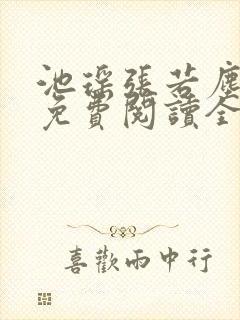 池瑤張若塵
免費閱讀全
喜歡雨中行